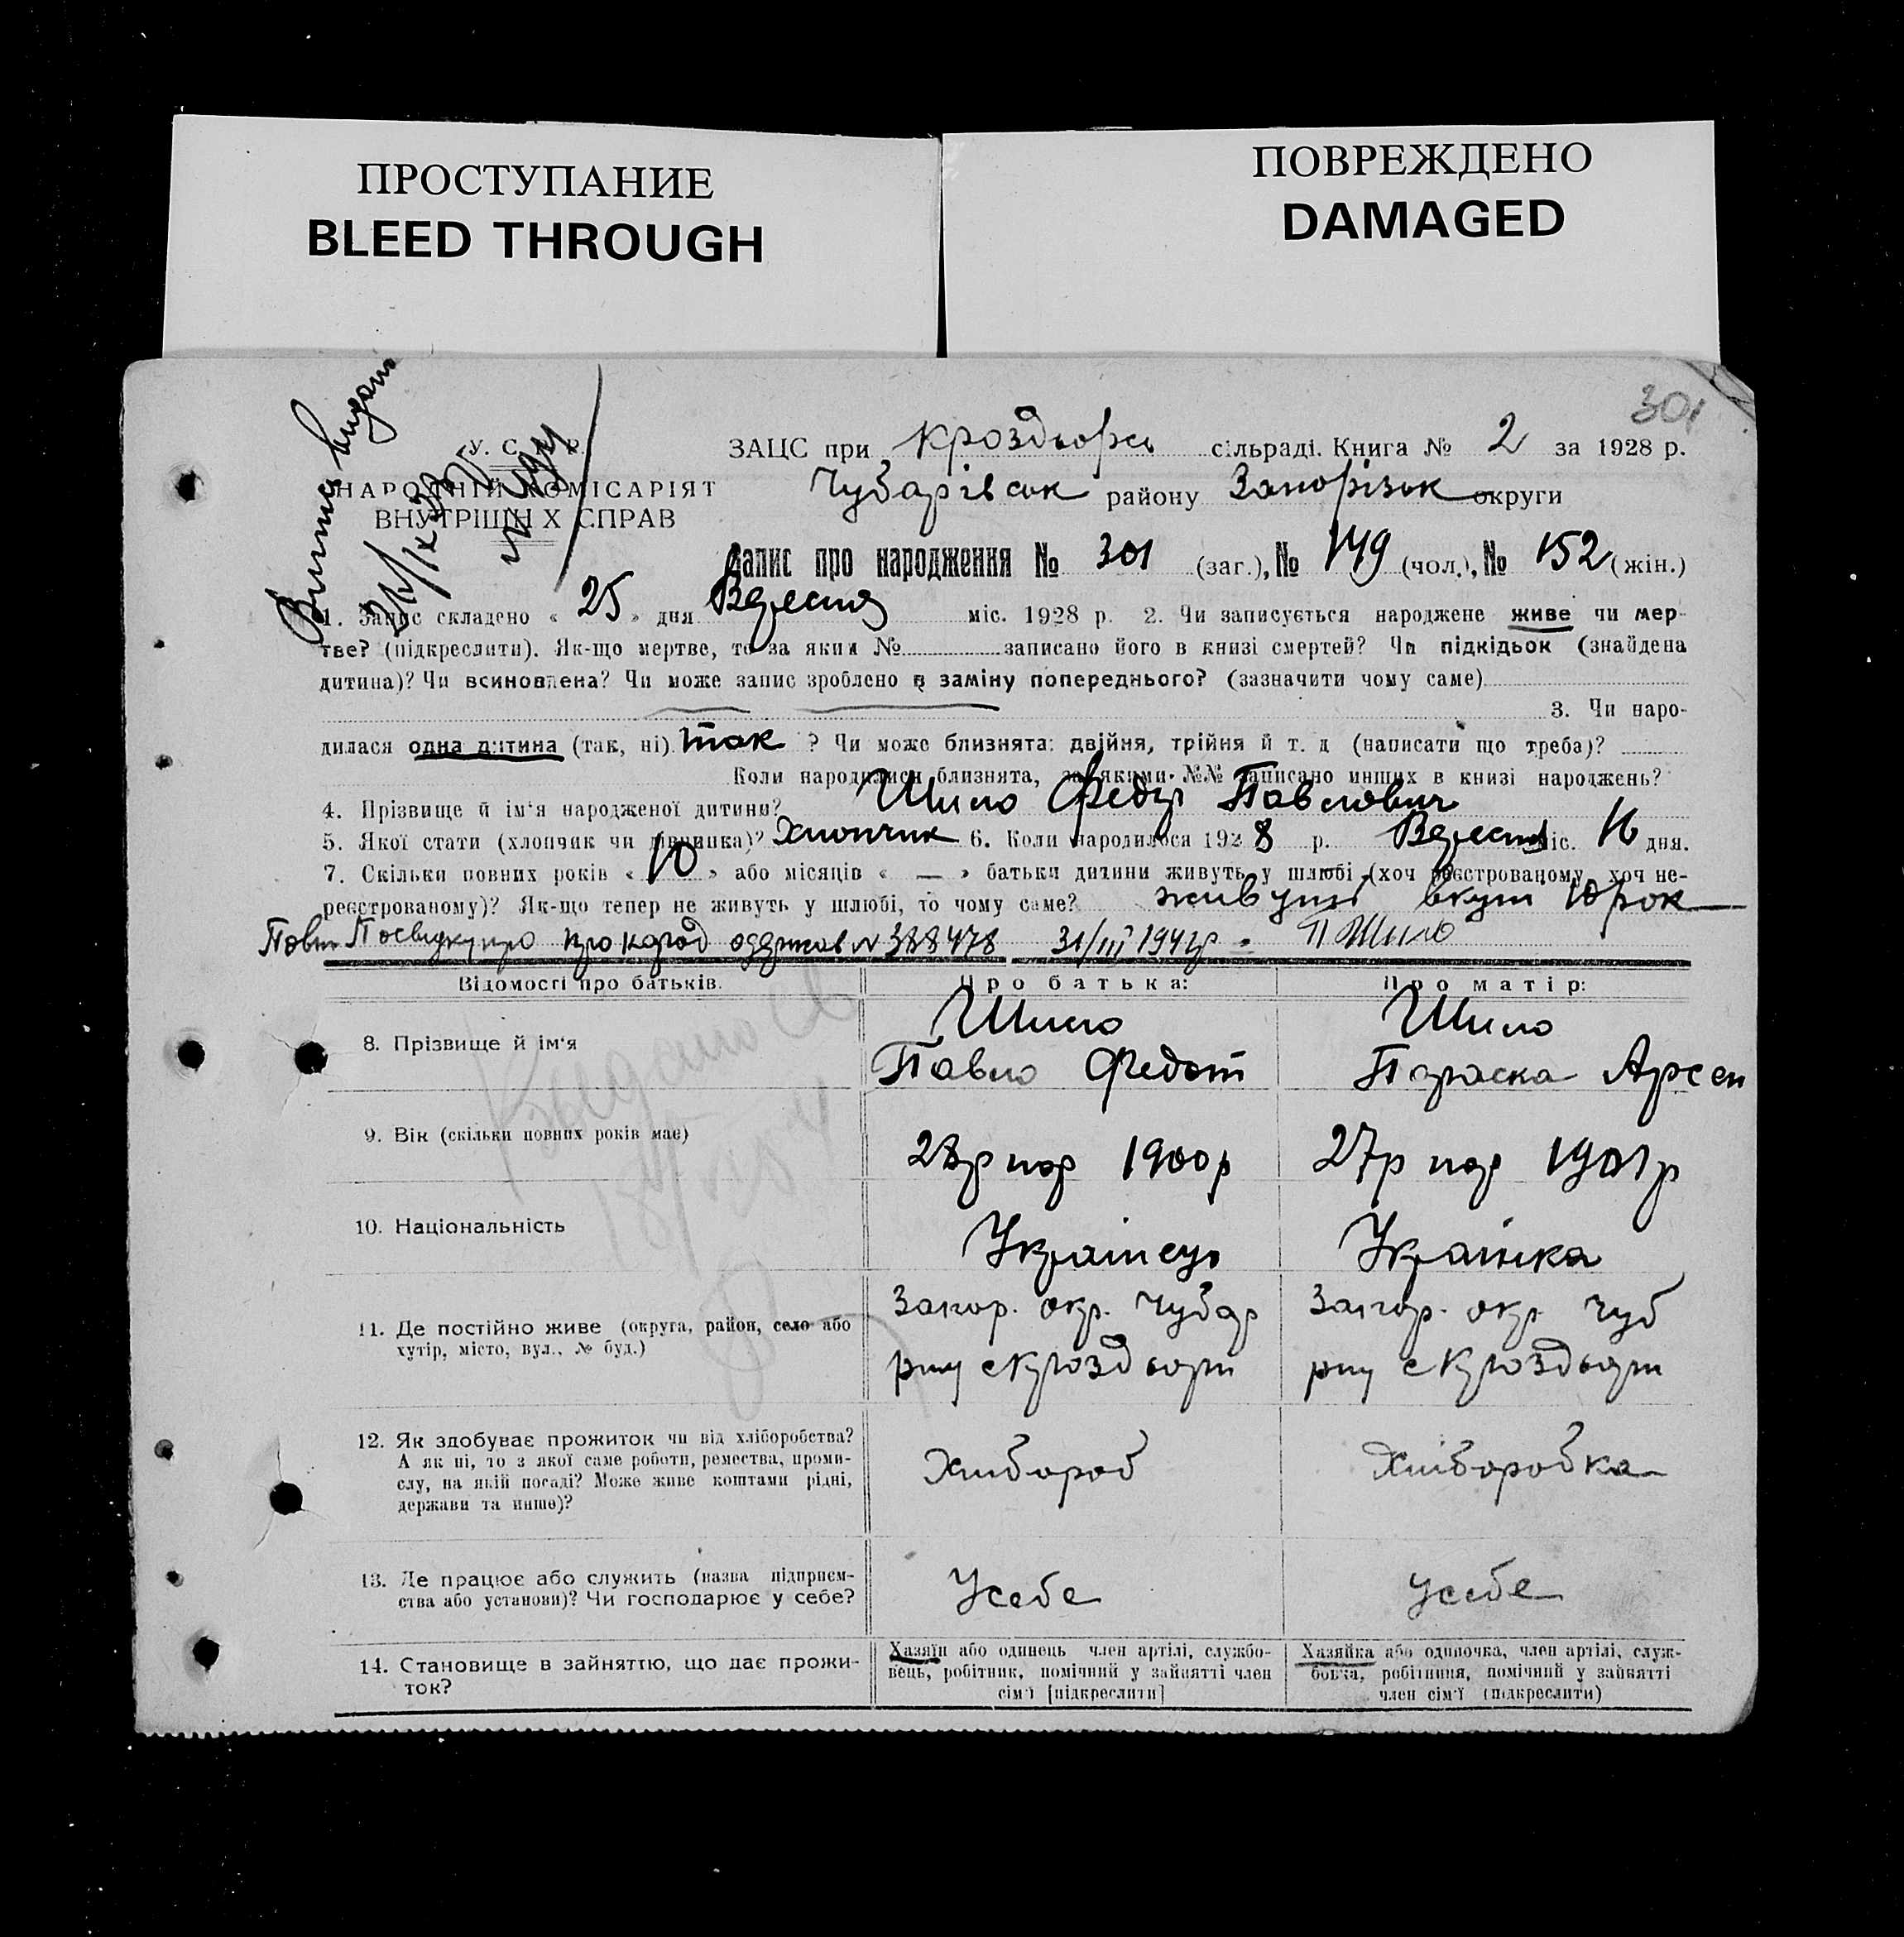 ПРОСТУПАНИЕ
BLEED THROUGH
ПОВРЕЖДЕНО
DAMAGED
301
Випись видана
У. С. Р. Р.
НАРОДНІЙ КОМІСАРІЯТ
ВНУТРІШНІХ СПРАВ
ЗАЦС при сільраді. Книга № 2 за 1928 р.
Чубарівськ району Запорізьк округи
Запис про народження № 301 (заг.), № 149 (чол.), № 152 (жін.)
1. Запис складено « 25 » дня Вересня міс. 1928 р. 2. Чи записується народжене живе чи мер-
тве? (підкреслити). Як-що мертве, то за яким № записано його в книзі смертей? Чи підкідьок (знайдена
дитина)? Чи всиновлена? Чи може запис зроблено в заміну попереднього? (зазначити чому саме)
3. Чи наро-
дилася одна дитина (так, ні) так ? Чи може близнята: двійня, трійня й т. д (написати що треба)?
Коли народилися близнята, за якими №№ записано инших в книзі народжень?
4. Прізвище й ім'я народженої дитини? Шило Федір Павлович
5. Якої стати (хлопчик чи дівчинка)? Хлопчик 6. Коли народилося 1928 р. Вересня міс. 16 дня.
7. Скільки повних років « 10 » або місяців « — » батьки дитини живуть у шлюбі (хоч реєстрованому, хоч не-
реєстрованому)? Як-що тепер не живуть у шлюбі, то чому саме? живуть вкупі 10 рок
Посвідку про народ одержав № 388478 31/III 194 р. П Шило
Відомості про батьків. Про батька: Про матір:
8. Прізвище й ім'я Шило Шило
Павло Федот Параска Арсен
9. Вік (скільки повних років має) 28р нар 1900р 27р нар 1901р
10. Національність Українець Українка
Запор. окр. Чубар Запор. окр. Чуб
11. Де постійно живе (округа, район, село або
хутір, місто, вул., № буд.)
12. Як здобуває прожиток чи від хліборобства? Хлібороб Хліборобка
А як ні, то з якої саме роботи, ремества, проми-
слу, на якій посаді? Може живе коштами рідні,
держави та инше)?
13. Де працює або служить (назва підприєм- Усебе Усебе
ства або установи)? Чи господарює у себе?
14. Становище в зайняттю, що дає прожи-
ток?
Хазяїн або одинець член артілі, службо-
вець, робітник, помічний у зайнятті член
сім'ї [підкреслити]
Хазяйка або одиночка, член артілі, служ-
бовка, робітниця, помічний у зайнятті
член сім'ї (підкреслити)